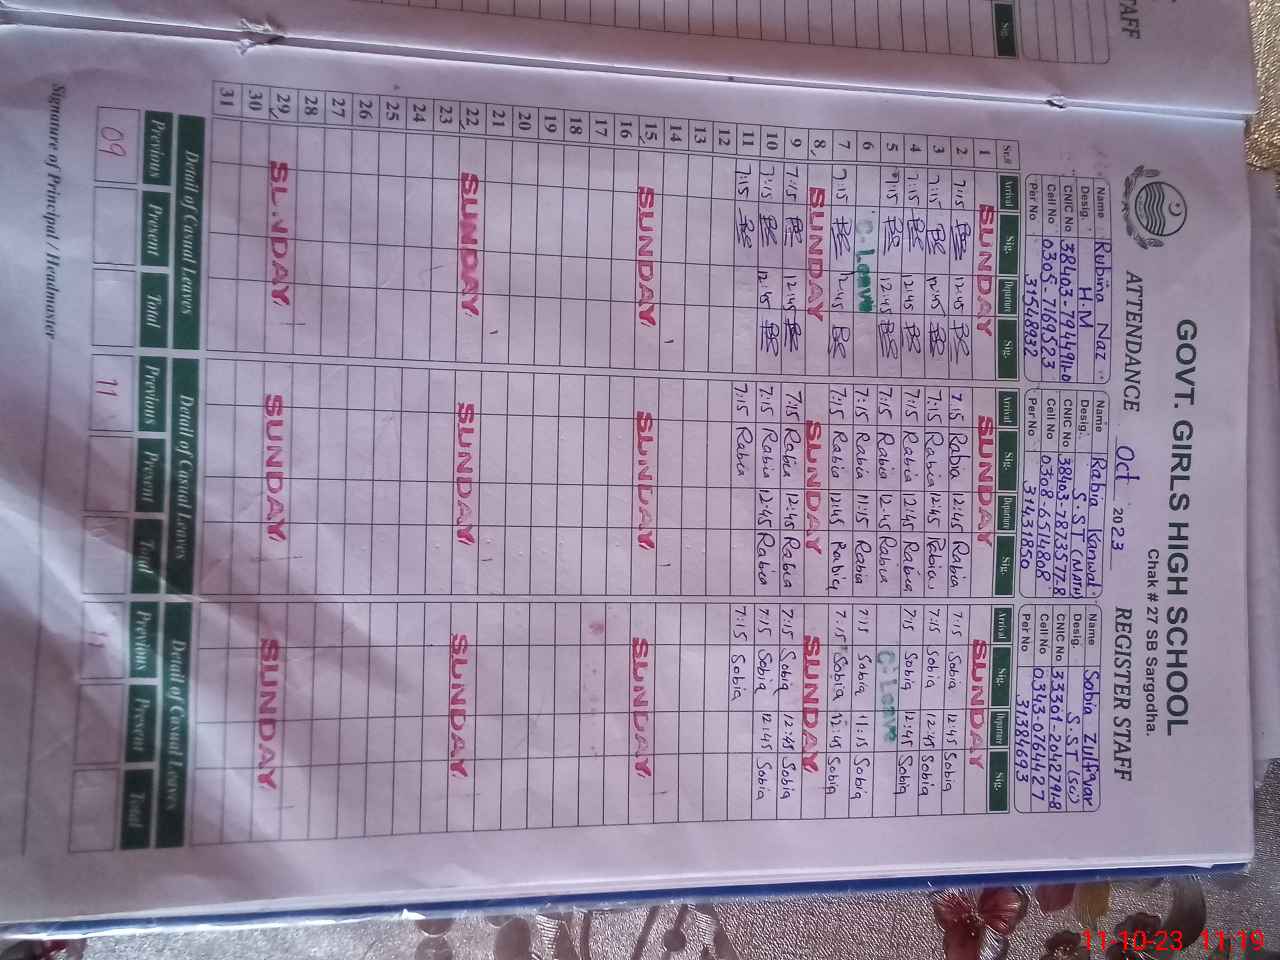 GOVT. GIRLS HIGH SCHOOL
Chak # 27 SB Sargodha.
ATTENDANCE Oct 2023 REGISTER STAFF
Name Rubina Naz Name Rabia Kanwal Name Sobia Zulfqar
Desig. H.M Desig. S.ST (MATH) Desig. S.ST (SC)
CNIC No 38403-7944911-0 CNIC No 38403-7873577-8 CNIC No 33301-2042791-8
Cell No 0305-7169523 Cell No 0308-6514808 Cell No 0343-0764427
Per No 31548932 Per No 31431850 Per No 31384693
Sr.# Arrival Sig. Departure Sig. Arrival Sig. Departure Sig. Arrival Sig. Departure Sig.
1 SUNDAY SUNDAY SUNDAY
2 7:15 12:45 7:15 Rabia 12:45 Rabia 7:15 Sobia 12:45 Sobia
3 7:15 12:45 7:15 Rabia 12:45 Rabia 7:15 Sobia 12:45 Sobia
4 7:15 12:45 7:15 Rabia 12:45 Rabia 7:15 Sobia 12:45 Sobia
5 7:15 12:45 7:15 Rabia 12:45 Rabia C-Leave
6 C-Leave 7:15 Rabia 11:15 Rabia 7:15 Sobia 11:15 Sobia
7 7:15 12:45 7:15 Rabia 12:45 Rabia 7:15 Sobia 12:45 Sobia
8 SUNDAY SUNDAY SUNDAY
9 7:15 12:45 7:15 Rabia 12:45 Rabia 7:15 Sobia 12:45 Sobia
10 7:15 12:45 7:15 Rabia 12:45 Rabia 7:15 Sobia 12:45 Sobia
11 7:15 7:15 Rabia 7:15 Sobia
12
13
14
15 SUNDAY SUNDAY SUNDAY
16
17
18
19
20
21
22 SUNDAY SUNDAY SUNDAY
23
24
25
26
27
28
29 SUNDAY SUNDAY SUNDAY
30
31
Detail of Casual Leaves Detail of Casual Leaves Detail of Casual Leaves
Previous Present Total Previous Present Total Previous Present Total
09 11 11
Signature of Principal / Headmaster
TAFF
Sig.
11-10-23 11:19